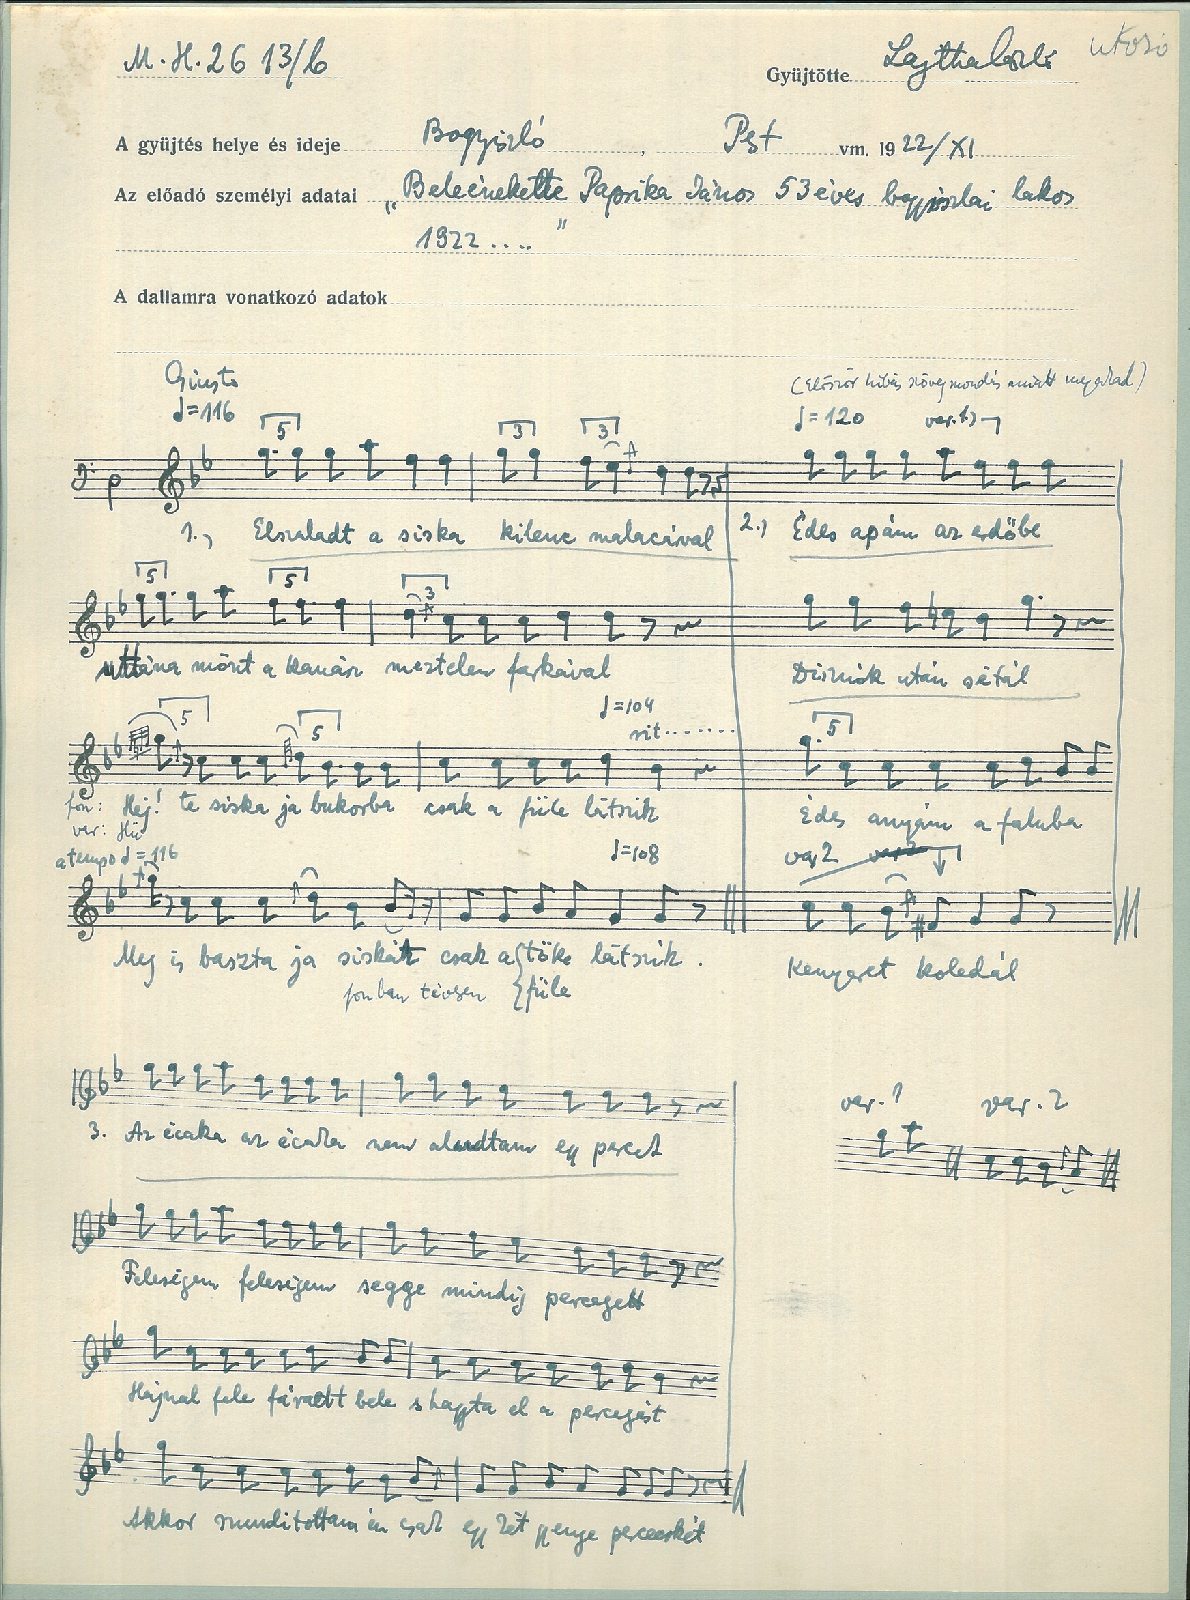 M. H. 26 13/b
Gyüjtötte Lajtha László
utolsó
A gyüjtés helye és ideje Bogyiszló, Pest vm. 1922/XI
Az előadó személyi adatai „Beleénekelte Paprika János 53 éves bogyiszlai lakos
1922....”
A dallamra vonatkozó adatok
Giusto
♩=116
(Először hibás szövegmondás miatt megakad)
♩=120 var. 1.)
5 3 3
1., Elszaladt a siska kilenc malacával
2., Édes apám az erdőbe
5 5 3
uttána mönt a kanász meztelen farkával
Disznók után sétál
♩=104
rit.......
5 5 5
fon: Hej! te siska ja bukorba csak a füle látszik
var: Hü
Édes anyám a faluba
a tempo ♩=116
♩=108
var 2
Meg is baszta ja siskát csak a töke látszik.
fonban tévesen füle
Kenyeret koledál
var. 1 var. 2
3. Az écaka az écaka nem aludtam egy percet
Feleségem feleségem segge mindig percegett
Hajnal fele fáradt bele s hagyta el a percegést
Akkor szundítottam én csak egy két gyenge percecskét